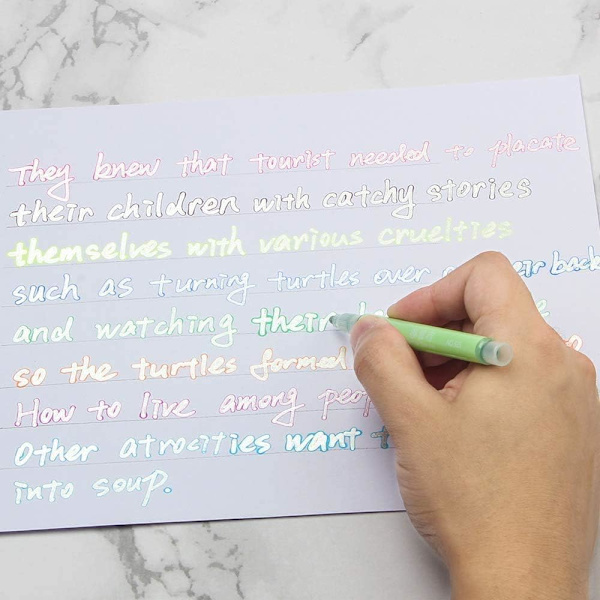 They knew that tourist needed to placate
their children with catchy stories
themselves with various cruelties
such as turning turtles over back
and watching their
so the turtles formed
How to live among
Other atrocities want
into soup.